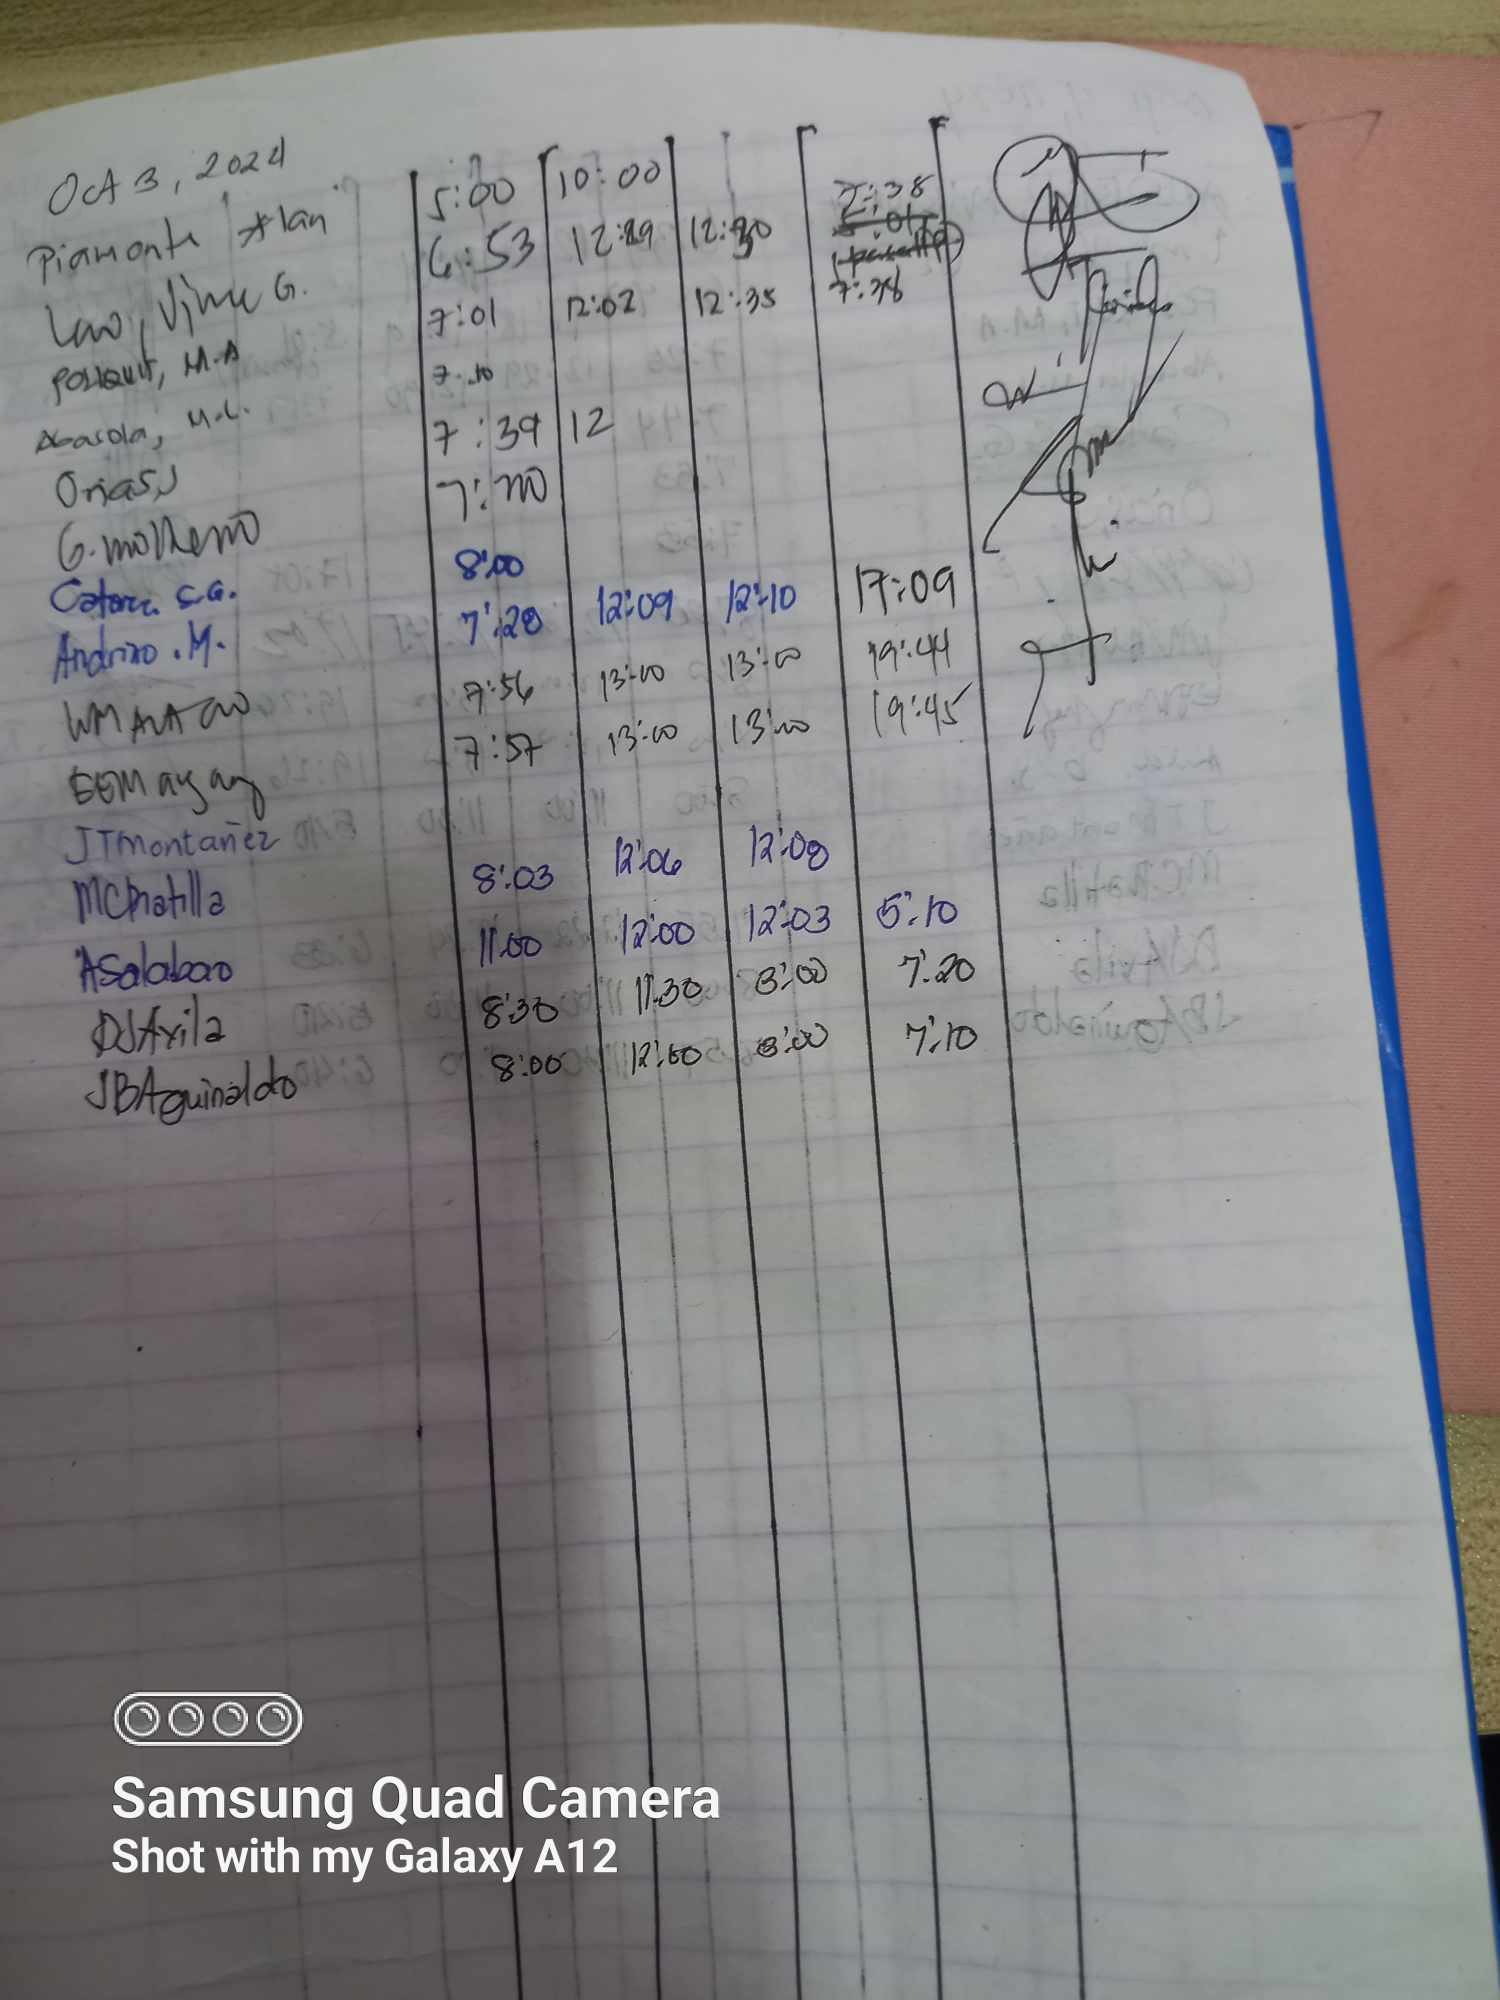 Oct 3, 2024
Piamonte Alan 5:00 10:00
Lao, Vince G. 6:53 12:29 12:30 2:38
M.A 7:01 12:02 12:35 7:38
Abasola, M.L. 7:10
Orias, J 7:39 12
G. Molheno 7:00
S.G. 8:00
Andrino . M. 7:28 12:09 12:10 17:09
7:56 13:00 13:00 19:44
EGMagay 7:57 13:00 13:00 19:45
JTMontañez
MCRatilla 8:03 12:06 12:08
ASalabao 11:00 12:00 12:03 5:10
DJAvila 8:30 11:30 3:00 7:20
JBAguinaldo 8:00 12:00 3:00 7:10
Samsung Quad Camera
Shot with my Galaxy A12